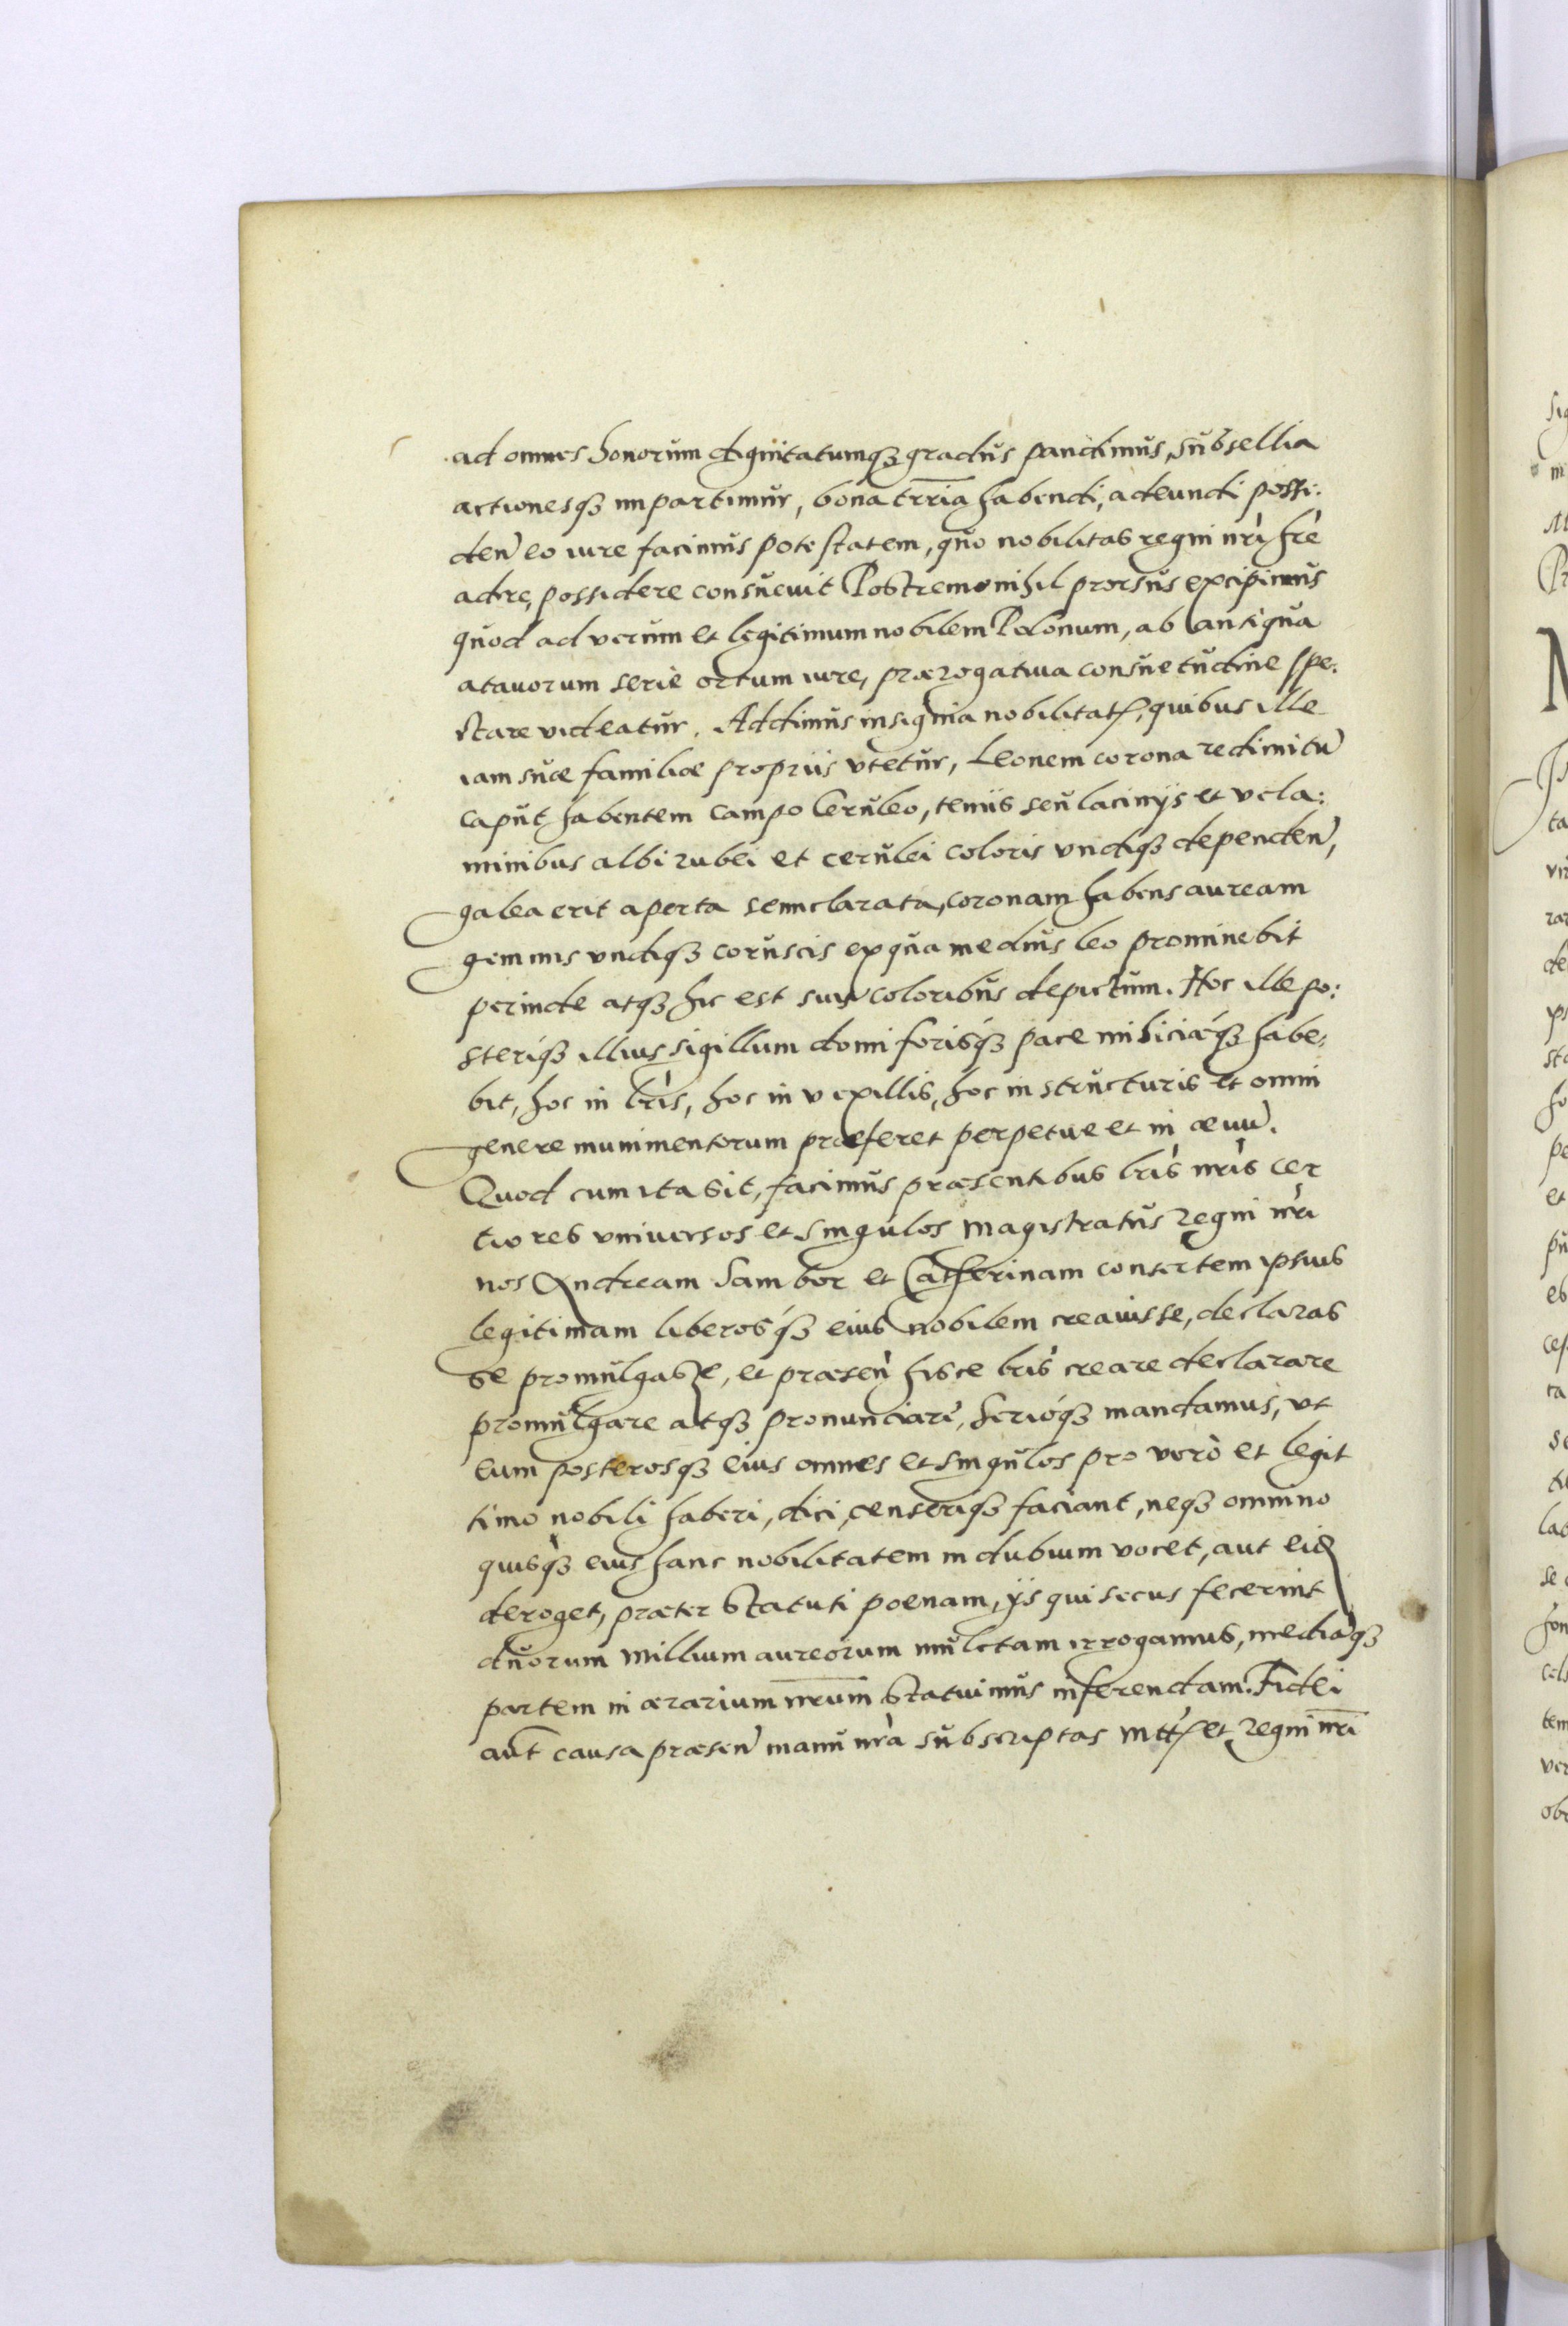 ad omnes honorum dignitatumqꝫ gradus pandimus, subsellia
actionesqꝫ impartimur, bona trria habendi, adeundi possi:
den̄ eo iure facimus potestatem, quo nobilitas regni nrì hrè
adire, possidere consuevit Postremo nihil prorsus excipimus
quod ad verum et legitimum nobilem Polonum, ab antiqua
atavorum seriè ortum iure, prærogativa consuetudine spe:
ctare videatur. Addimus insignia nobilitatꝭ, quibus ille
iam suæ familiæ propriis vtetur, Leonem corona redimitū
caput habentem campo Ceruleo, teniis seu lacinijs et vela:
minibus albi rubei et cerulei coloris vndiqꝫ dependen̄,
galea erit aperta semiclarata, coronam habens auream
gemmis vndiqꝫ coruscis ex qua medius leo prominebit
perinde atqꝫ hic est suis coloribus depictum. Hoc ille po:
steriqꝫ illius sigillum domi forisqꝫ pace miliciaqꝫ habe:
bit, hoc in lrìs, hoc in vexillis, hoc in structuris et omni
genere munimentorum præferet perpetue et in ævū.
Quod cum ita sit, facimus præsentibus lrìs nrìs cer
tiores vniversos et singulos magistratus Regni nrì
nos Andream Sambor et Catherinam consortem ipsius
legitimam liberosqꝫ eius nobilem creavisse, declaras
se promulgasse, et præsen̄ hisce lrìs creare declarare
promulgare atqꝫ pronunciare, Serioqꝫ mandamus, vt
eum posterosqꝫ eius omnes et singulos pro verò et legit
timo nobili haberi, dici, censeriqꝫ faciant, neqꝫ omnino
quisqꝫ eius hanc nobilitatem in dubium vocet, aut eidē
deroget, præter Statuti poenam, ijs qui secus fecerint
duorum millium aureorum mulctam irrogamus, mediaqꝫ
partem in ærarium nrum̄ Statuimus inferendam. Fidei
aut̄ causa præsen̄ manu nrà subscriptas mttꝭ et Regni nrī